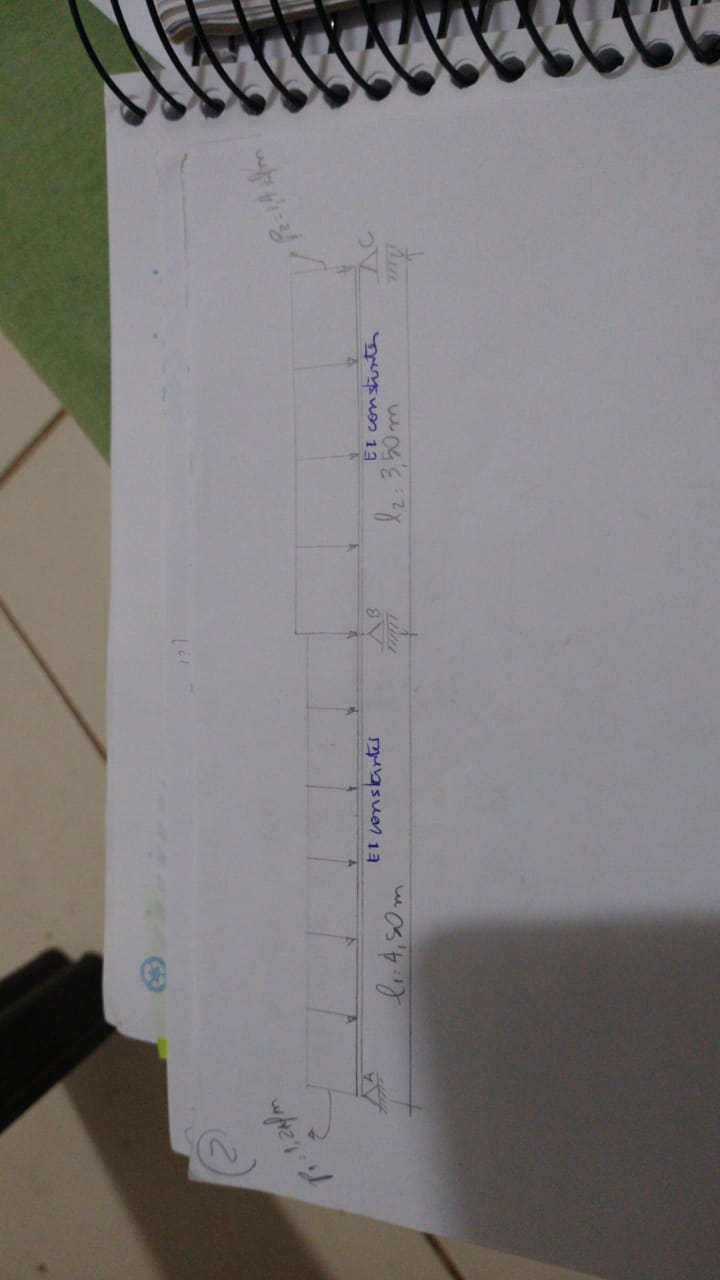 2
p₁=1,2 tf/m
p₂=1,4 tf/m
A
B
C
EI constantes
EI constantes
l₁=4,50m
l₂=3,50m